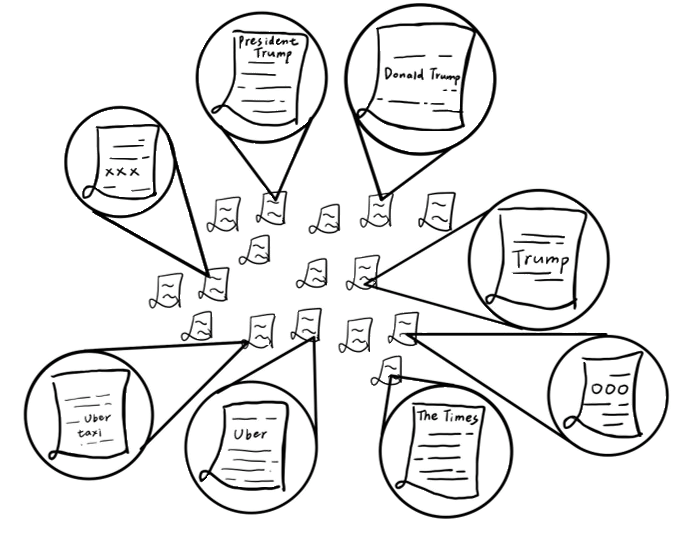 President
Trump
Donald Trump
xxx
Trump
ooo
Uber
taxi
Uber
The Times